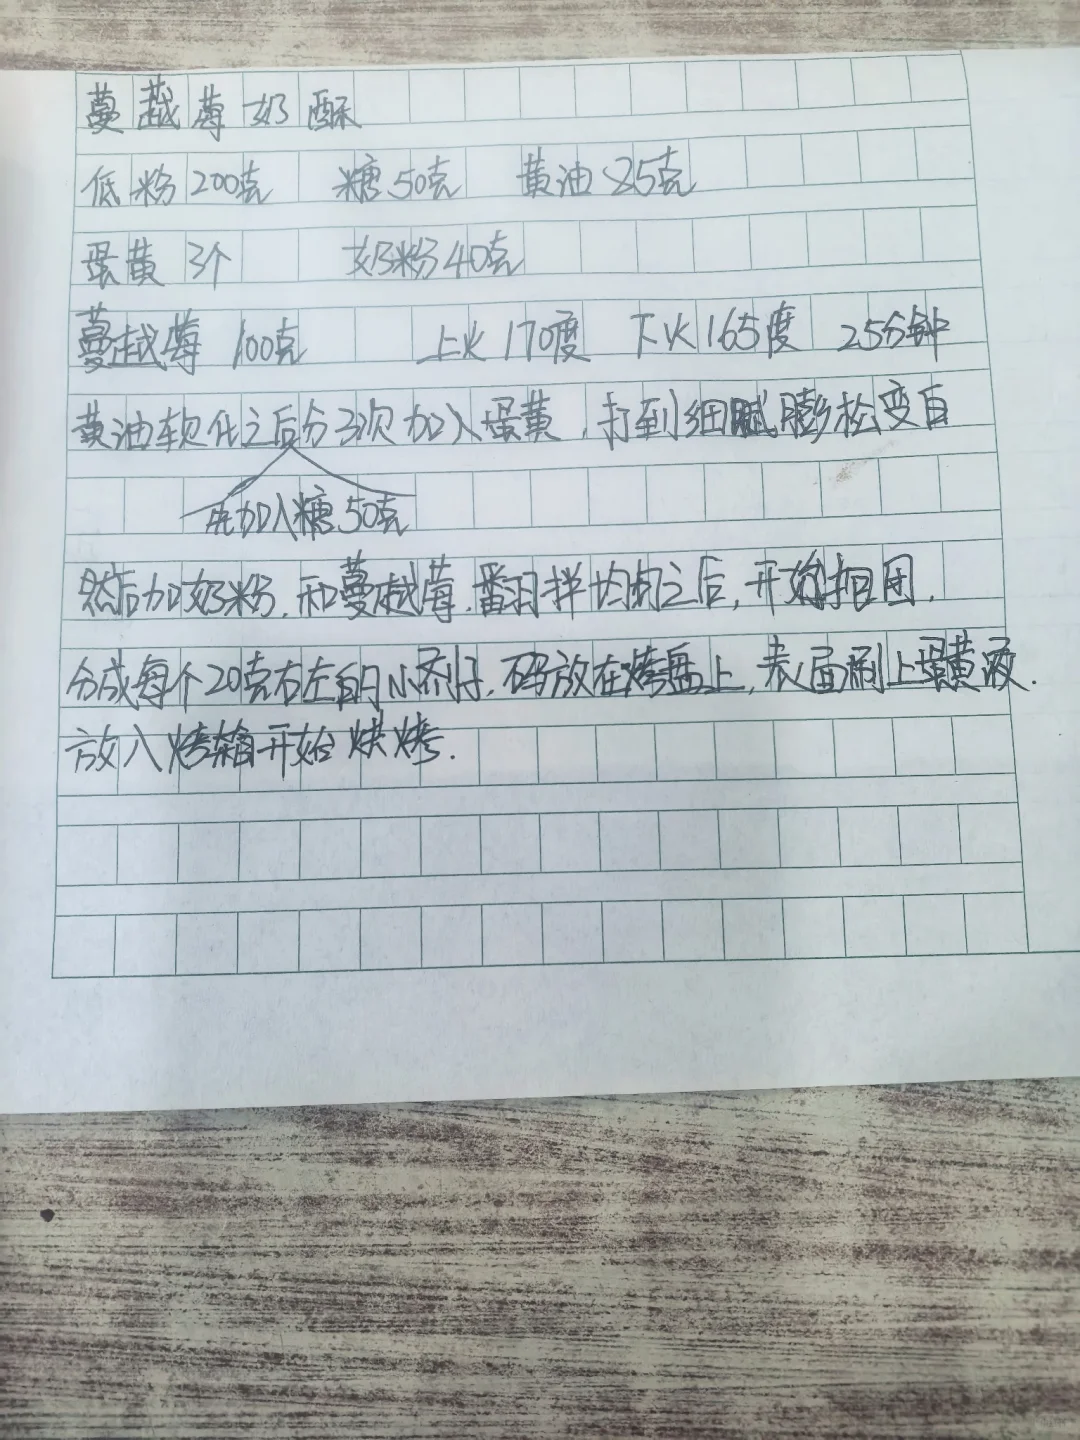 蔓越莓奶酥
低粉200克 糖50克 黄油85克
蛋黄3个 奶粉40克
蔓越莓100克 上火170度 下火165度 25分钟
黄油软化之后分3次加入蛋黄,打到细腻膨松变白
先加入糖50克
然后加奶粉,和蔓越莓,翻拌均匀之后,开始抱团.
分成每个20克右左的小剂子,码放在烤盘上,表面刷上蛋黄液.
放入烤箱开始烘烤.